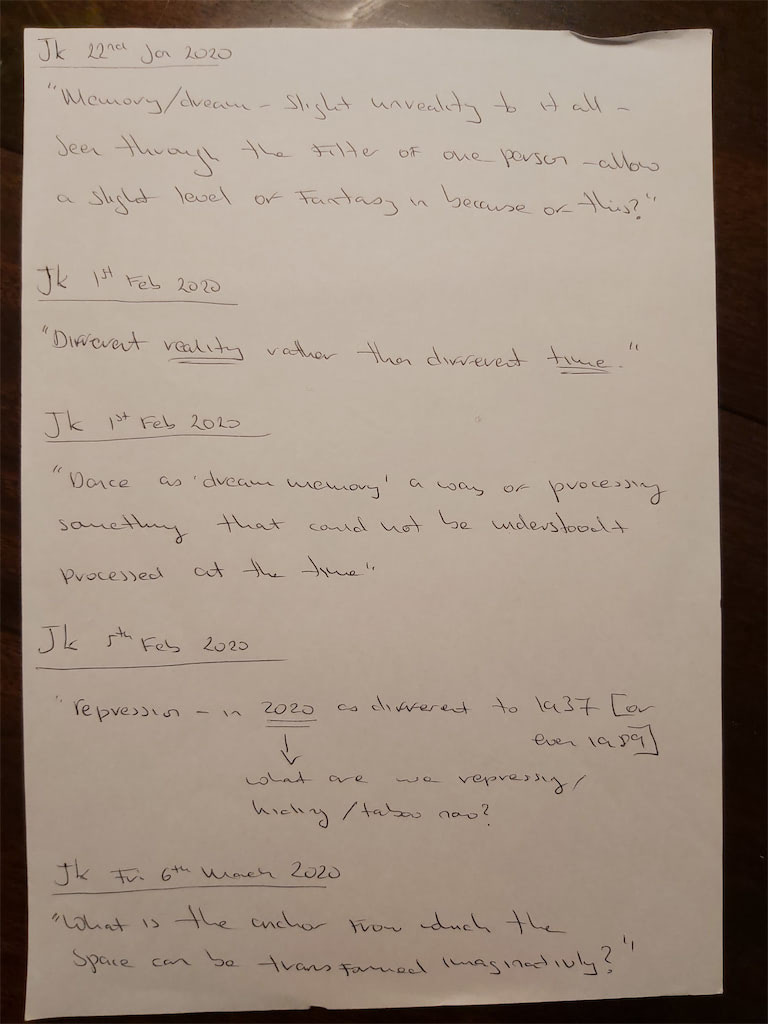 Jk 22nd Jan 2020
"Memory/dream - slight unreality to it all -
seen through the filter of one person - allow
a slight level of Fantasy in because of this?"
Jk 1st Feb 2020
"Different reality rather than different time."
Jk 1st Feb 2020
"Dance as 'dream memory' a way of processing
something that could not be understood +
processed at the time"
Jk 5th Feb 2020
"repression - in 2020 as different to 1937 [or
even 1989]
↓
what are we repressing/
hiding/taboo now?
Jk Fri 6th March 2020
"What is the anchor from which the
space can be transformed imaginatively?"